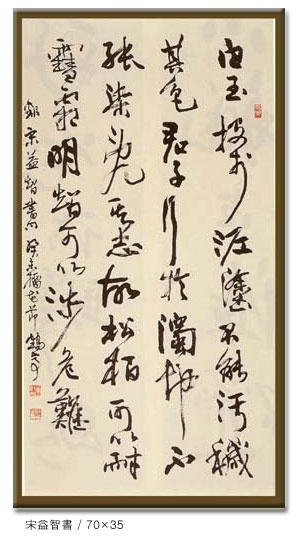 白玉投於泥塗不能污穢
其色君子行於濁地不
能染亂其志故松柏可以耐
雪霜明智可以涉危難
宋益智書 癸未榴花節
宋益智書 / 70×35